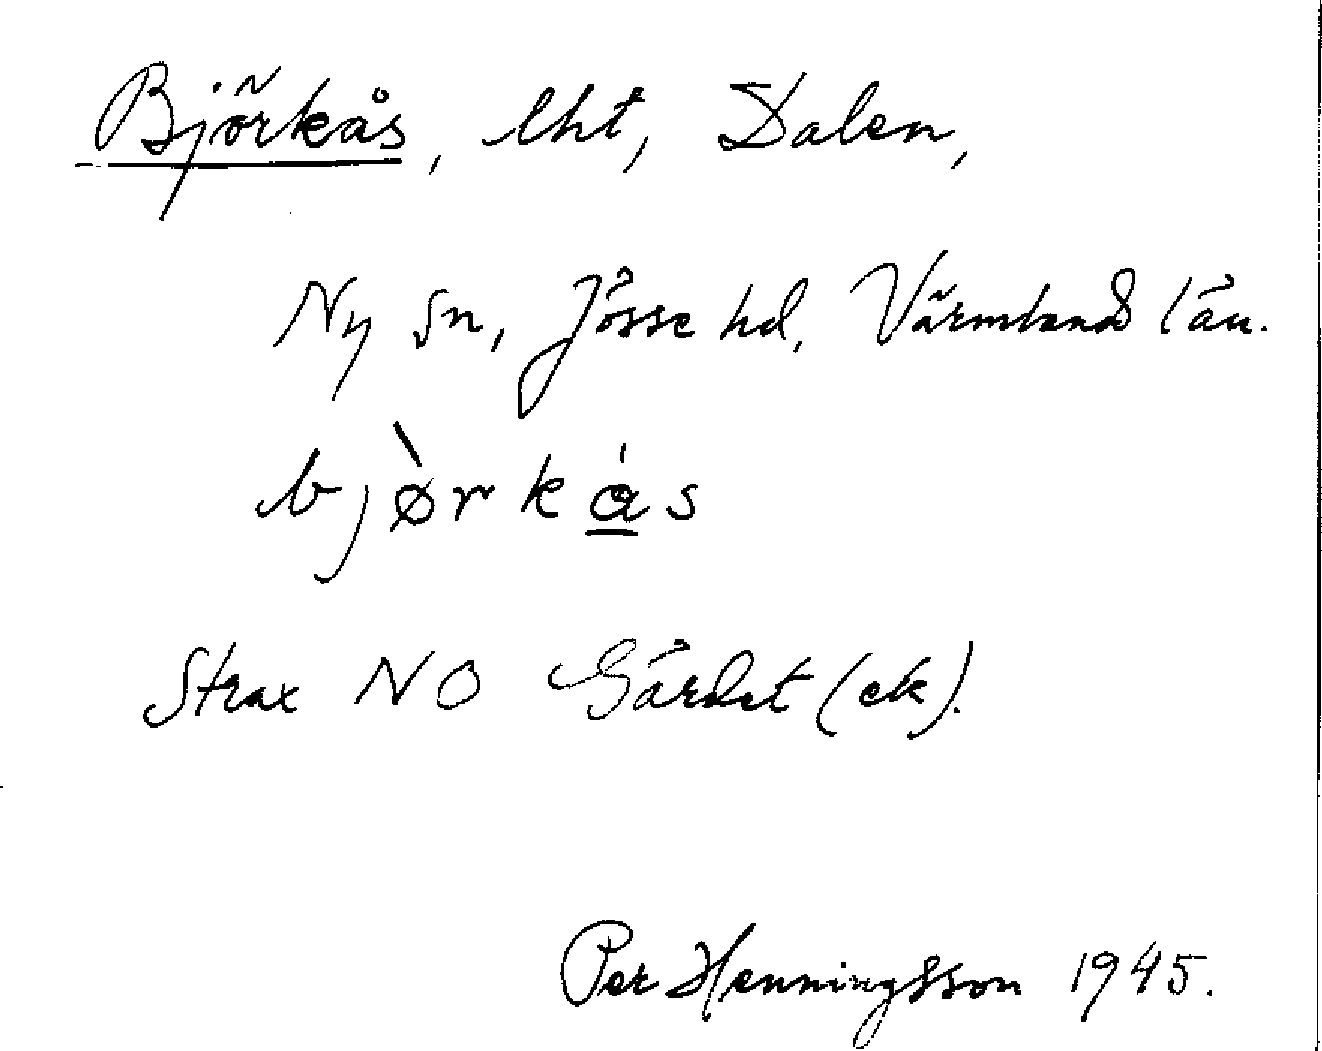 Björkås, lht, Dalen,
Ny sn, Jösse hd, Värmland län.
bjø̀rká̲s
Strax NO Gärdet (ek).
Per Henningsson 1945.